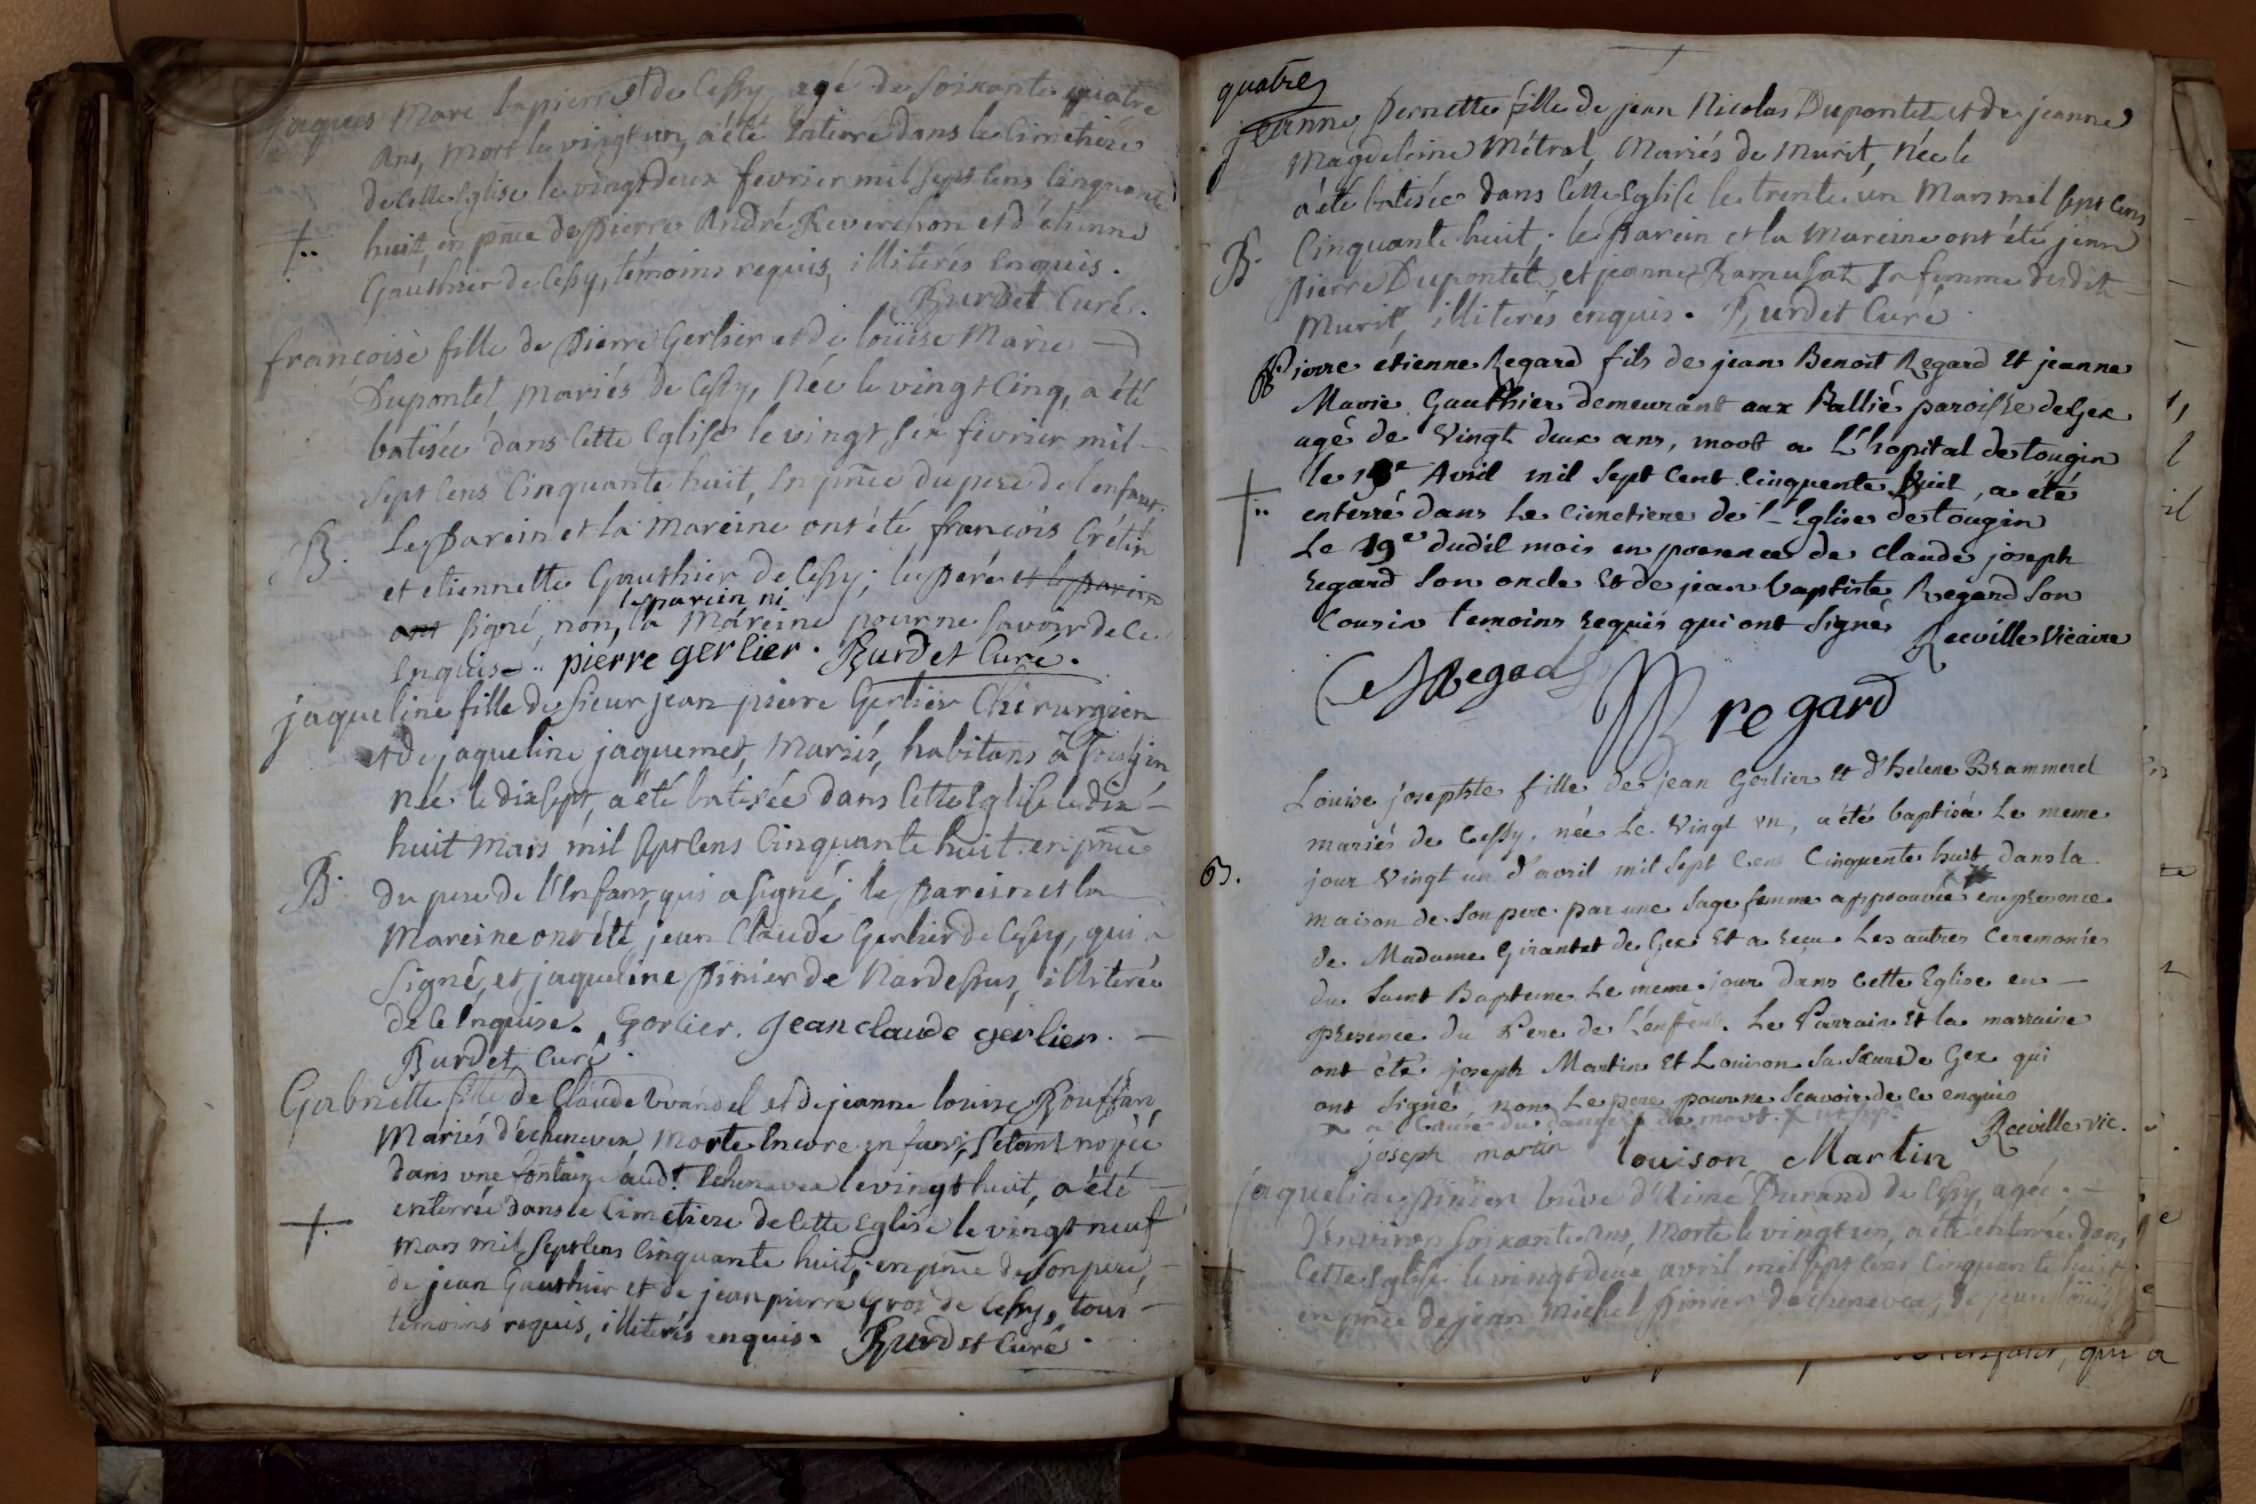 jaques Marc Lapierre de Cessy agé de soixante quatre
Ans, mort le vingt un, a été Enterré dans le Cimetière
de cette Eglise le vingt deux fevrier mil sept cens cinquante
huit, en pnce de pierre André Reverchon et d'étienne
Gauthier de Cessy, témoins requis, illiterés enquis.
Burdet Curé.
francoise fille de pierre Gerlier et de loüise Marie
Dupontet, mariés de Cessy, Née le vingt Cinq, a été
batisée dans Cette Eglise le vingt six fevrier mil
sept cens Cinquante huit, en pnce du pere de l'enfant.
B. Le parein et la mareine ont été françois Crétin
et etiennette Gauthier de Cessy; le pere et le parein
le parein ni
ont signé, non, la Mareine pour ne savoir de ce
enquise. pierre gerlier. Burdet Curé.
jaqueline fille de sieur jean pierre Gerlier Chirurgien
et de jaqueline jaquemet, Mariés, habitans à Tougin
née le dix sept, a été batisée dans Cette Eglise le dix
huit Mars mil sept cens Cinquante huit en pnce
B. du pere de l'Enfant, qui a signé; le Parein et la
Mareine ont été jean Claude Gerlier de Cessy, qui a
signé, et jaqueline Pinier de Nardessus, illiterée
de ce Enquise. Gerlier. jean claude gerlier.
Burdet Curé.
Gabriette fille de Claude Vuandel et de jeanne louise Rouffan
Mariés d'échenevex morte Encore enfant, s'étant noÿée
dans une fontaine aud.t Echenevex le vingt huit, a été
enterrée dans le Cimetiere de Cette Eglise le vingt neuf
Mars mil sept cens Cinquante huit, en pnce de son pere,
de jean Gauthier et de jean pierre Gros de Cessy, tous
temoins requis, illiterés enquis. Burdet Curé.
quatre
jeanne Pernette fille de jean Nicolas Dupontet et de jeanne
Magdeleine Métral, Mariés de Murit, Née le
a été batisée dans Cette Eglise le trente un Mars mil sept cens
B. Cinquante huit; le Parein et la Mareine ont été jean
pierre Dupontet et jeanne Ramusat sa femme dudit
Murit, illiterés enquis. Burdet Curé.
Pierre etienne Regard fils de jean Benoit Regard Et jeanne
Marie Gauthier demeurant aux Pallié paroisse de Gex
agé de Vingt deux ans, mort a L'hopital de tougin
le Avril mil Sept Cent Cinquente huit, a été
enterré dans Le Cimetiere de l'Eglise de tougin
Le 19e dudit mois en presence de Claude joseph
Regard Son oncle Et de jean baptiste Regard Son
Cousin temoins Requis qui ont Signé Reeville Vicaire
Regard
regard
Louise josephte fille de jean Gerlier Et d'helene Brammerel
mariés de Cessy, née Le Vingt un, a été baptisée Le meme
B. jour Vingt un d'avril mil Sept Cent Cinquente huit, dans la
maison de Son pere par une Sage femme approuvée en presence
de Madame Girantet de Gex Et a reçu Les autres Ceremonies
du Saint Bapteme Le meme jour dans Cette Eglise en
Presence du Pere de L'enfent. Le Parrain Et la marraine
ont été joseph Martin Et Louison Sa Sœur de Gex qui
ont Signé, non Le pere pour ne Scavoir de ce enquis
a Cause du danger de mort.
Reeville vic.
joseph martin louison Martin
jaqueline Pinier veuve d'Aimé Durand de Cessy, agée
d'environ soixante ans, Morte le vingt un, a été enterrée dans
Cette Eglise le vingt deux avril mil sept cens Cinquante huit
en pnce de jean Michel Pinier d'echenevex, de jean loüis